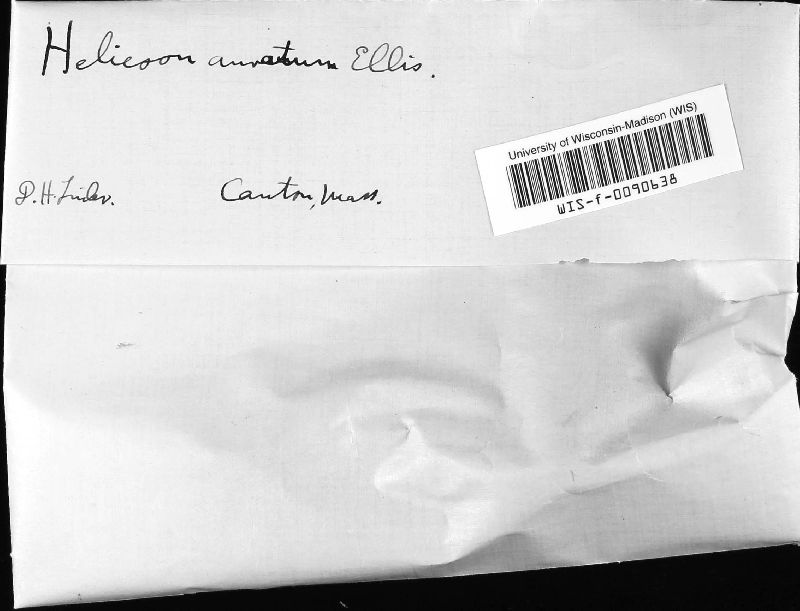 Helicoon auratum Ellis.
University of Wisconsin-Madison (WIS)
WIS-f-0090638
D.H. Linder. Canton, Mass.